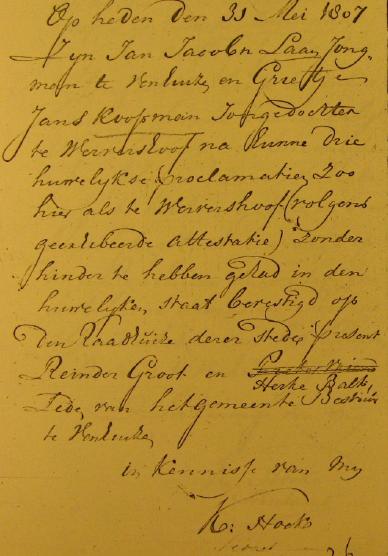 Op heden den 31 Mei 1807
Zyn Jan Jacobsn Laan Jong-
man te Venhuize en Grietje
Jans Koopman Jongedochter
te Wervershoof na hunne drie
huwelykse proclamatien Zoo
hier als te Wervershoof (volgens
geexhibeerde attestatie) Zonder
hinder te hebben gehad in den
huwelyken staat bevestigd op
den Raadhuize dezer stede, present
Reinder Groot en
Herke Balk,
Lede van het gemeente Bestuur
te Venhuize,
in Kennisse van My
K: Hoek